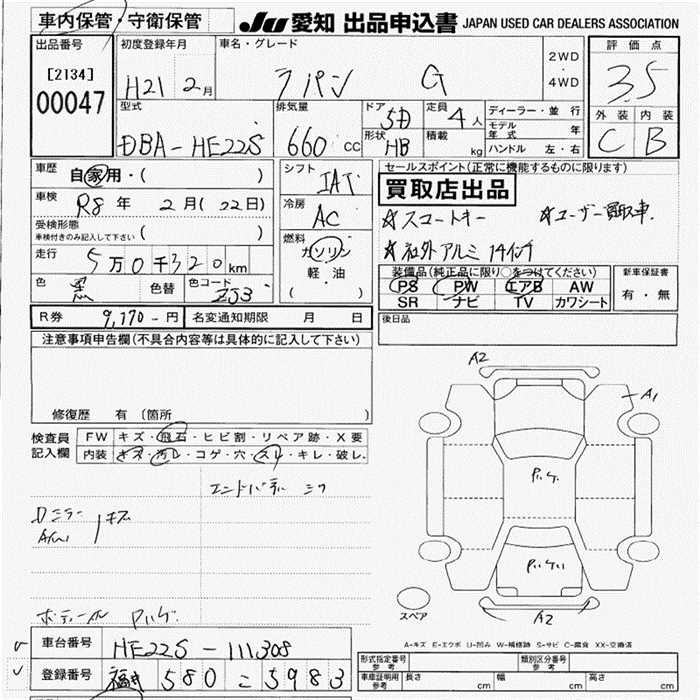 車内保管・守衛保管 JU 愛知 出品申込書 JAPAN USED CAR DEALERS ASSOCIATION
出品番号 初度登録年月 車名・グレード 評価点
[2134] 00047 H21 2月 ラパン G 2WD・4WD 3.5
型式 排気量 ドア 5D 定員 4人 ディーラー・並行 外装 内装
DBA-HE22S 660cc 形状 HB 積載 kg モデル年式 年 C B
ハンドル 左・右
車歴 自家用・( ) シフト IAT セールスポイント(正常に機能するものに限ります)
車検 R8年 2月(22日) 冷房 AC 買取店出品
受検形態 車検付きのみ記入して下さい ( ) ☆スマートキー ☆ユーザー買取車.
走行 5万0千320km 燃料 ガソリン 軽油 ( ) ☆社外アルミ 14インチ
色 黒 色替 色コード ZJ3 装備品(純正品に限り○をつけてください) 新車保証書
PS PW エアB AW 有・無
SR ナビ TV カワシート
R券 9,170-円 名変通知期限 月 日 後日品
注意事項申告欄(不具合内容等は具体的に記入して下さい)
修復歴 有 〔箇所 〕
検査員記入欄 FW キズ・飛石・ヒビ割・リペア跡・X要
内装 キズ・汚レ・コゲ・穴・スレ・キレ・破レ.
Dミラー キズ
A2
A1
A2
スペア
A-キズ E-エクボ U-凹み W-補修跡 S-サビ C-腐食 XX-交換済
車台番号 HE22S-111308
登録番号 福井 580 こ 5983
形式指定番号 参考 類別区分番号 参考
車庫証明用 参考 長さ cm 幅 cm 高さ cm